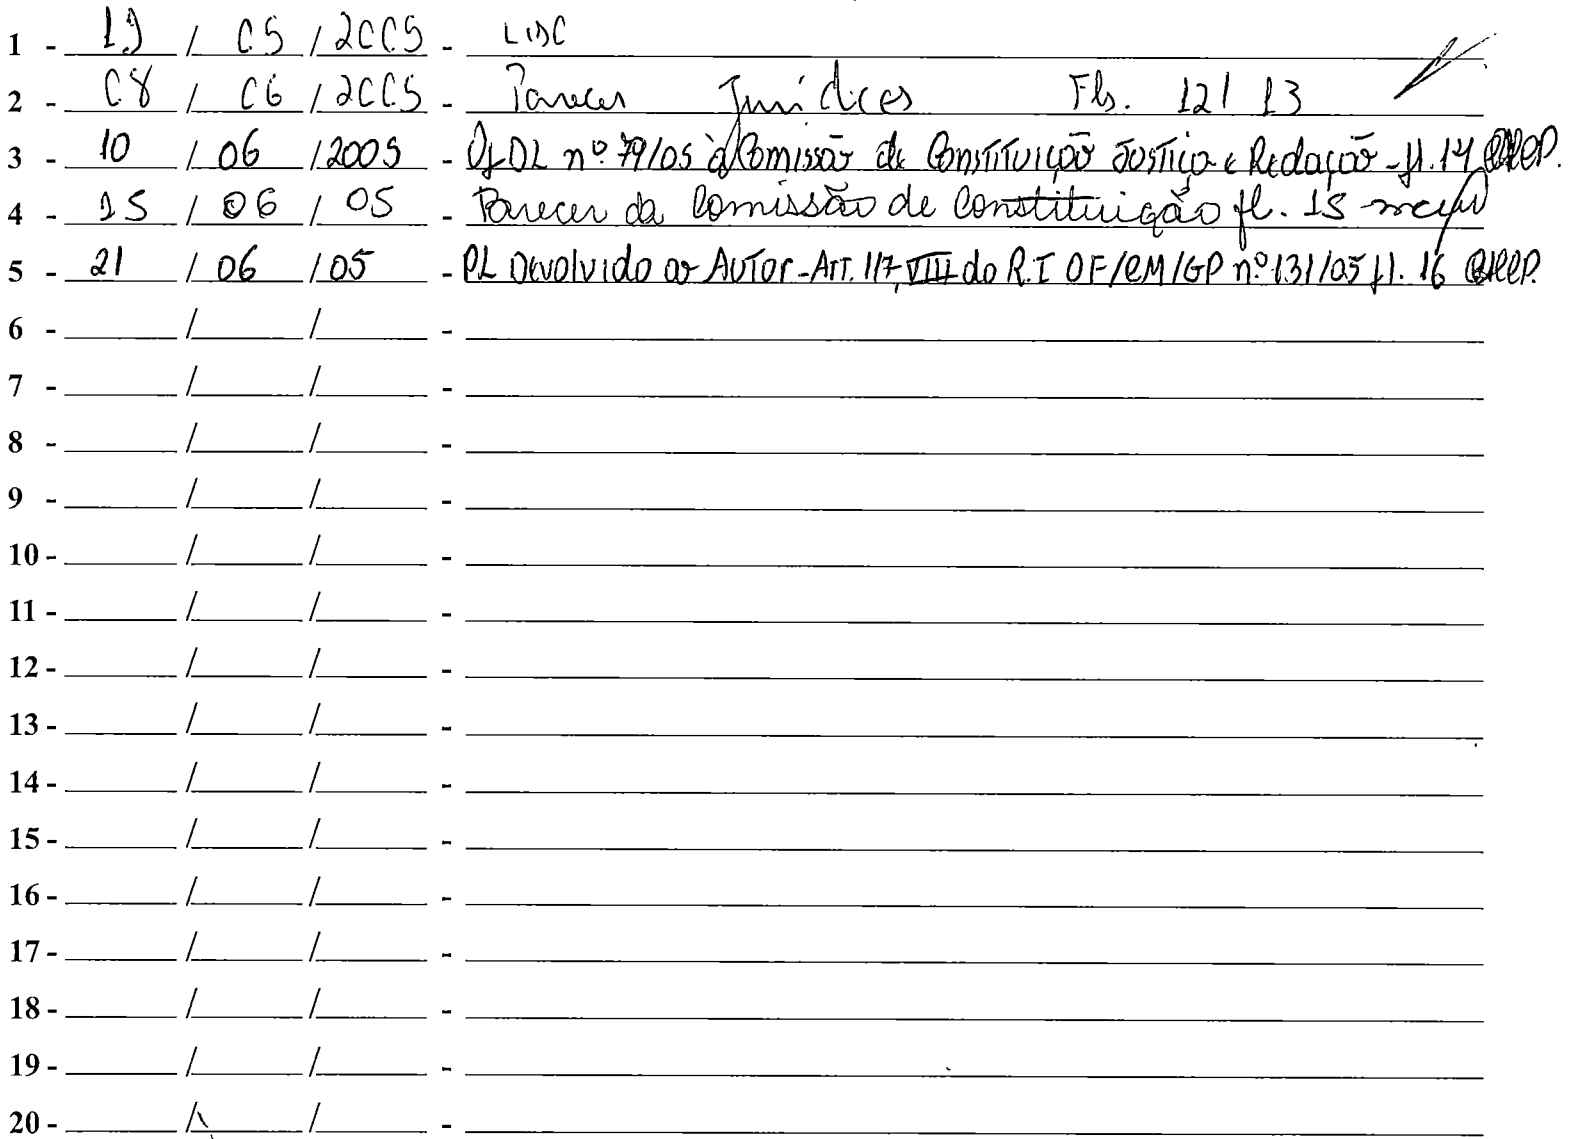 1 - 19 / 05 / 2005 - Lido
2 - 08 / 06 / 2005 - Parecer Jurídico Fls. 12/13
3 - 10 / 06 / 2005 - Of DL nº 79/05 à Comissão de Constituição Justiça e Redação - fl. 14
4 - 15 / 06 / 05 - Parecer da Comissão de Constituição fl. 15
5 - 21 / 06 / 05 - PL Devolvido ao Autor - Art. 117, VIII do R.I OF/CM/GP nº 131/05 fl. 16
6 - / / -
7 - / / -
8 - / / -
9 - / / -
10 - / / -
11 - / / -
12 - / / -
13 - / / -
14 - / / -
15 - / / -
16 - / / -
17 - / / -
18 - / / -
19 - / / -
20 - / / -